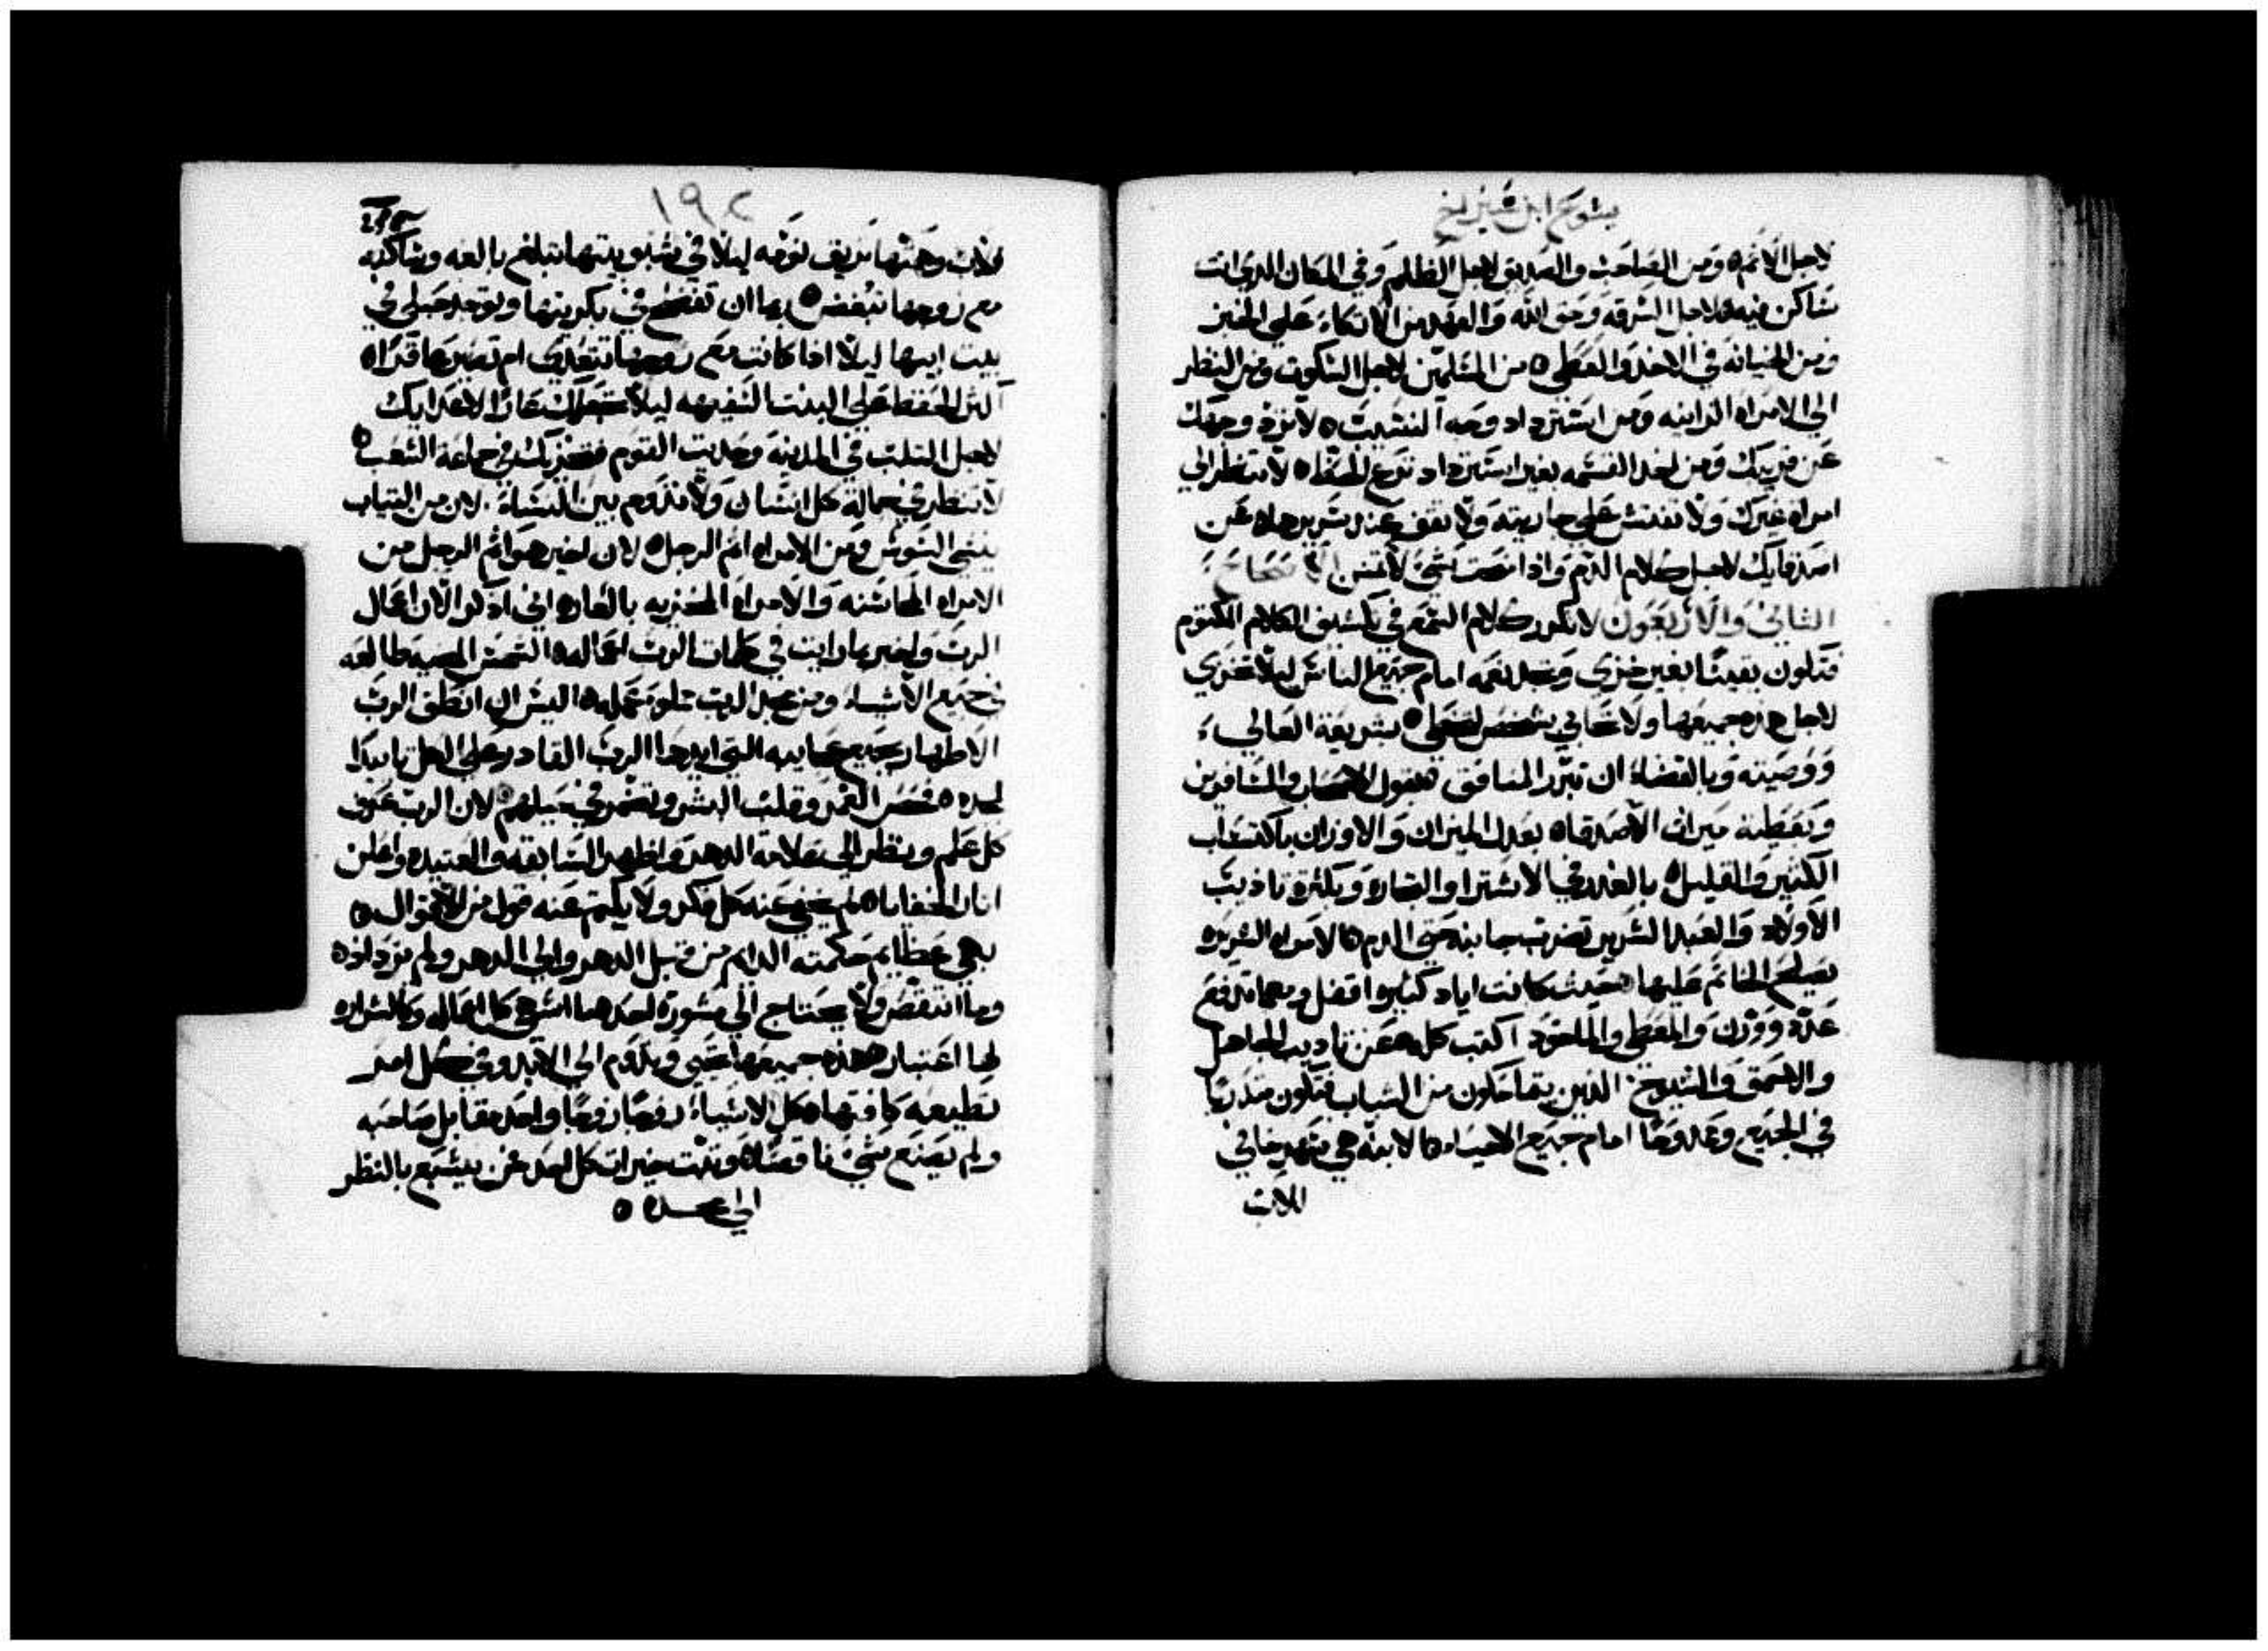 يشوع ابن شيراخ
لاجل الاثم ٥ ومن الصاحب والصديق لاجل الظلم وفي المكان الدي انت
ساكن فيه لاجل السرقه وحق الله والعهد من الاتكاء علي الخبز
ومن الخيانه في الاخد والعطي ٥ من المسلمين لاجل السكوت ومن النظر
الي الامراه الزانيه ومن استرداد وجه النسيب ٥ لا ترد وجهك
عن قريبك ومن اخد القسمه بغير استرداد لا تنظر الي
امراه غيرك ولا تفتش علي جاريته ولا تقف عند سريرها ٥ عن
اصدقايك لاجل كلام الدم وادا اعطيت شي لا تمنن
الثاني والاربعون لا تكرر كلام السمع في يكشف الكلام المكتوم
فتكون يقينا بغير خزي وتجد نعمه امام جميع الناس ليلا تخزي
لاجل هذه جميعها ولا تحابي بشخص لتخطي ٥ شريعة العالي
ووصيته وبالقضاء ان تبرر المنافق والمسافرين
وبعطية ميراث الاصدقاء ٥ بعدل الميزان والاوزان باكتساب
الكثير والقليل ٥ في الاشترا والتجاره وبكثرة تاديب
الاولاد والعبد الشرير تضرب جانبه حتي الدم ٥ الامراه الشريره
يصلح الخاتم عليها حيث كانت اياد كثيره اقفل ومهما تدفع
عده ووزن والمعطي والماخود اكتب كله ٥ عن تاديب الجاهل
والاحمق والشيوخ الدين يتحاكمون من الشباب فتكون متدربا
في الجميع وممدوحا امام جميع الاحياء ٥ الابنه هي سهر خافي
للاب
١٩٢
للاب وهمتها تزيف نومه ليلا في شبوبيتها تبلغ بالغه وساكنه
مع زوجها تبغض ٥ ربما ان تفتضح في بكوريتها وتوجد حبلي في
بيت ابيها ليلا ادا كانت مع زوجها تتعدي ام تصير عاقرا ٥
اكثر الحفظ علي البنت السفيهه ليلا تجعلك عارا لاعدايك
لاجل الثلب في المدينه وحديث القوم فتخزيك في جماعة الشعب ٥
لا تنظر في جمال كل انسان ولا تدوم بين النساء لان من الثياب
ينشي السوس ومن الامراه اثم الرجل ٥ لان اخير هو اثم الرجل من
الامراه المحاسنه والامراه المخزيه بالعار ٥ اني ادكر الان اعمال
الرب واخبر بما رايت في كلمات الرب اعماله ٥ الشمس المضيه طالعه
في جميع الاشياء ومن مجد الرب مملو عمله ٥ اليس ان انطق الرب
الاطهار بجميع عجايبه التي ايدها الرب القادر علي الكل تاييدا
لمجده ٥ فحص الغمر وقلب البشر وتضمر في حيلهم ٥ لان الرب عرف
كل علم وينظر الي علامة الدهر واظهر السابقه والعتيده واعلن
اثار الخفايا ٥ لم يخفي عنه كل فكر ولا يكتم عنه قول من الاقوال ٥
بهي عظايم حكمته الدايم من قبل الدهر والي الدهر ولم تزداد ٥
وما انتقص ولا يحتاج الي مشورة احد ما اشهي كل اعماله وكالشراره
لها اعتبار هذه جميعها تحيي وتدوم الي الابد وفي كل امر
تطيعه كافتها ٥ كل الاشياء زوجا زوجا واحد مقابل صاحبه
ولم يصنع شي ناقصا ٥ وثبت خيرات كل احد فمن يشبع بالنظر
الي مجده ٥